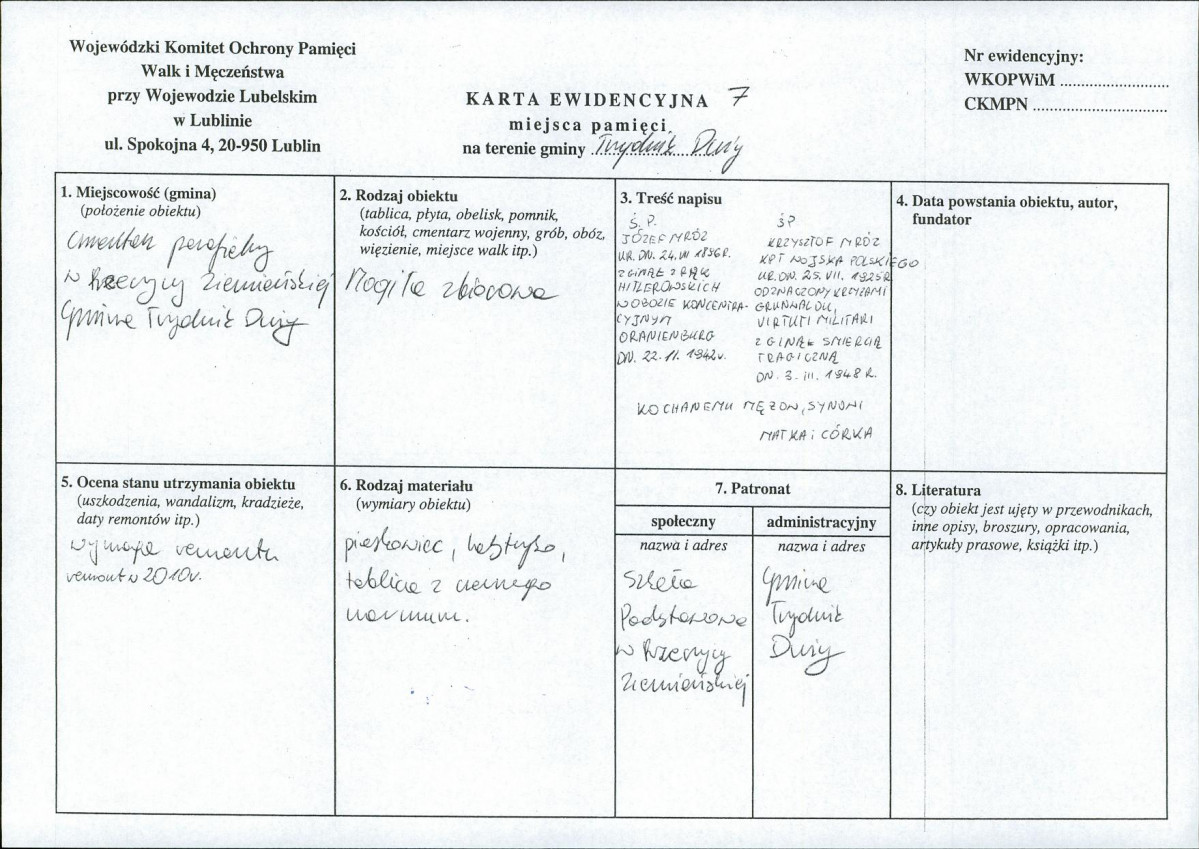 Wojewódzki Komitet Ochrony Pamięci
Walk i Męczeństwa
przy Wojewodzie Lubelskim
w Lublinie
ul. Spokojna 4, 20-950 Lublin
KARTA EWIDENCYJNA 7
miejsca pamięci
na terenie gminy Trzydnik Duży
Nr ewidencyjny:
WKOPWiM ..........................
CKMPN ................................
1. Miejscowość (gmina)
(położenie obiektu)
Cmentarz parafialny
w Rzeczycy Ziemiańskiej
Gmina Trzydnik Duży
2. Rodzaj obiektu
(tablica, płyta, obelisk, pomnik,
kościół, cmentarz wojenny, grób, obóz,
więzienie, miejsce walk itp.)
Mogiła zbiorowa
3. Treść napisu
Ś. P.
JÓZEF MRÓZ
UR. DN. 24. III 1896 R.
ZGINĄŁ Z RĄK
HITLEROWSKICH
W OBOZIE KONCENTRA-
CYJNYM
ORANIENBURG
DN. 22. 11. 1942 r.
ŚP
KRZYSZTOF MRÓZ
KPT WOJSKA POLSKIEGO
UR. DN. 25. VII. 1925 R
ODZNACZONY KRZYŻAMI
GRUNWALDU,
VIRTUTI MILITARI
ZGINĄŁ ŚMIERCIĄ
TRAGICZNĄ
DN. 3. III. 1948 R.
KOCHANEMU MĘŻOWI, SYNOWI
MATKA i CÓRKA
4. Data powstania obiektu, autor,
fundator
5. Ocena stanu utrzymania obiektu
(uszkodzenia, wandalizm, kradzieże,
daty remontów itp.)
wymaga remontu
remont w 2010 r.
6. Rodzaj materiału
(wymiary obiektu)
piaskowiec, lastryko,
tablica z czarnego
marmuru.
7. Patronat
społeczny
nazwa i adres
Szkoła
Podstawowa
w Rzeczycy
Ziemiańskiej
administracyjny
nazwa i adres
Gmina
Trzydnik
Duży
8. Literatura
(czy obiekt jest ujęty w przewodnikach,
inne opisy, broszury, opracowania,
artykuły prasowe, książki itp.)